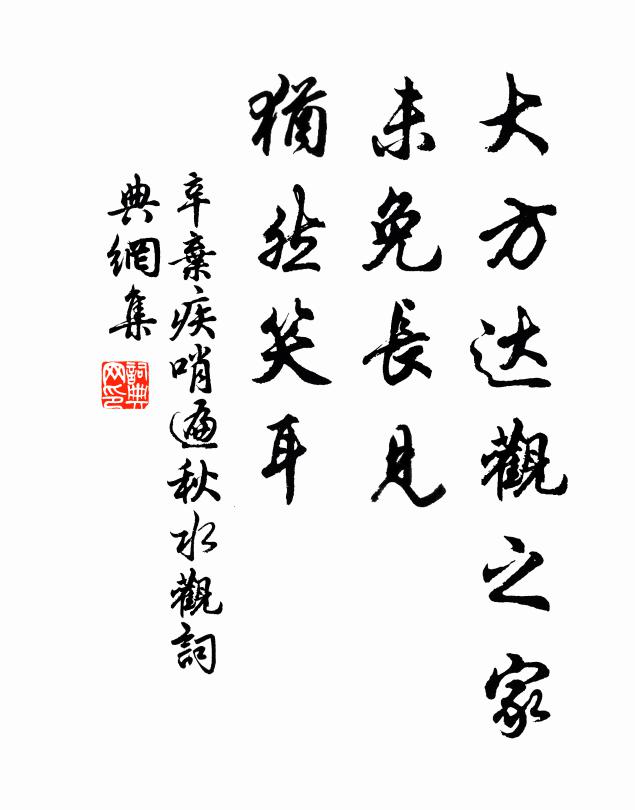 大方达觀之家
未免長見
猶然笑耳
辛棄疾哨遍秋水觀詞
典網集
詞典网印